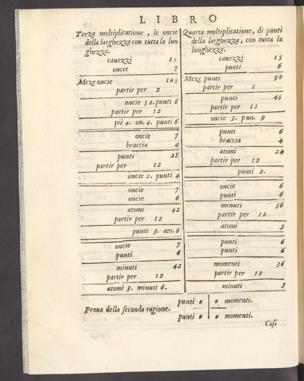 LIBRO
Terza moltiplicatione, le oncie
della larghezza con tutta la lun
ghezza.
cauezzi 15
oncie 7
Meze oncie 105
partir per 2
oncie 52. punti 6
partir per 12
piè 4. on. 4. punti 6
oncie 7
braccia 4
punti 28
partir per 12
oncie 2. punti 4
oncie 7
oncie 6
atomi 42
partir per 12
punti 3. ato. 6
oncie 7
punti 6
minuti 42
partir per 12
atomi 3. minuti 6.
Quarta moltiplicatione, di punti
della larghezza, con tutta la
lunghezza.
cauezzi 15
punti 6
Mezi punti 90
partir per 2
punti 45
partir per 12
oncie 3. pun. 9
punti 6
braccia 4
atomi 24
partir per 12
punti 2.
oncie 6
punti 6
minuti 36
partir per 12
atomi 3
punti 6
punti 6
momenti 36
partir per 12
minuti 3
Proua della seconda ragione.
punti 0 0 momenti.
punti 0 0 momenti.
Cisi